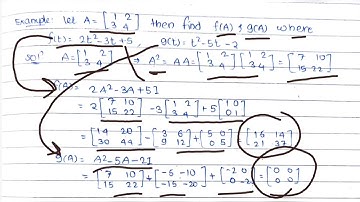 Example: let A = [1 2; 3 4] then find f(A) & g(A) where
f(t) = 2t²-3t+5 g(t) = t²-5t-2
Solⁿ A = [1 2; 3 4] ⇒ A² = AA = [1 2; 3 4] [1 2; 3 4] = [7 10; 15 22]
f(A) = 2A²-3A+5I
= 2 [7 10; 15 22] -3 [1 2; 3 4] + 5 [1 0; 0 1]
= [14 20; 30 44] - [3 6; 9 12] + [5 0; 0 5] = [16 14; 21 37]
g(A) = A²-5A-2I
= [7 10; 15 22] + [-5 -10; -15 -20] + [-2 0; 0 -2] = [0 0; 0 0]